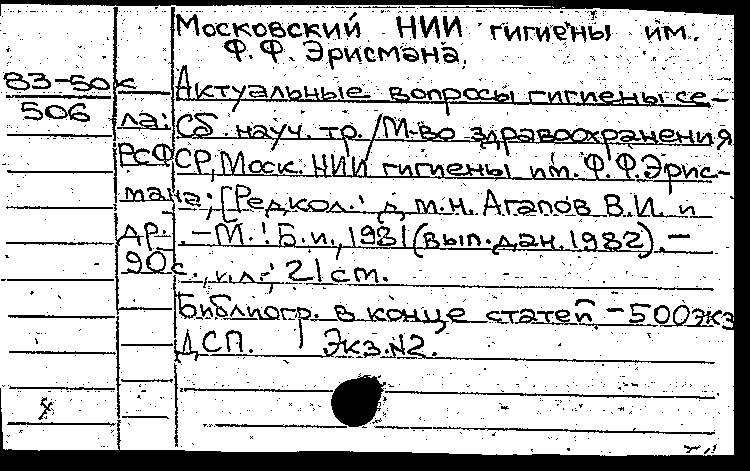 Московский НИИ гигиены им.
Ф. Ф. Эрисмана.
83-50
506
Актуальные вопросы гигиены се-
ла: Сб. науч. тр. / М-во здравоохранения
РСФСР, Моск. НИИ гигиены им. Ф. Ф. Эрис-
мана; [Редкол.: д. м. н. Агапов В. И. и
др. - М.: Б. и., 1981 (вып. дан. 1982). -
90 с., ил.; 21 cm.
Библиогр. в конце статей - 500 экз
ДСП. Экз. №2.